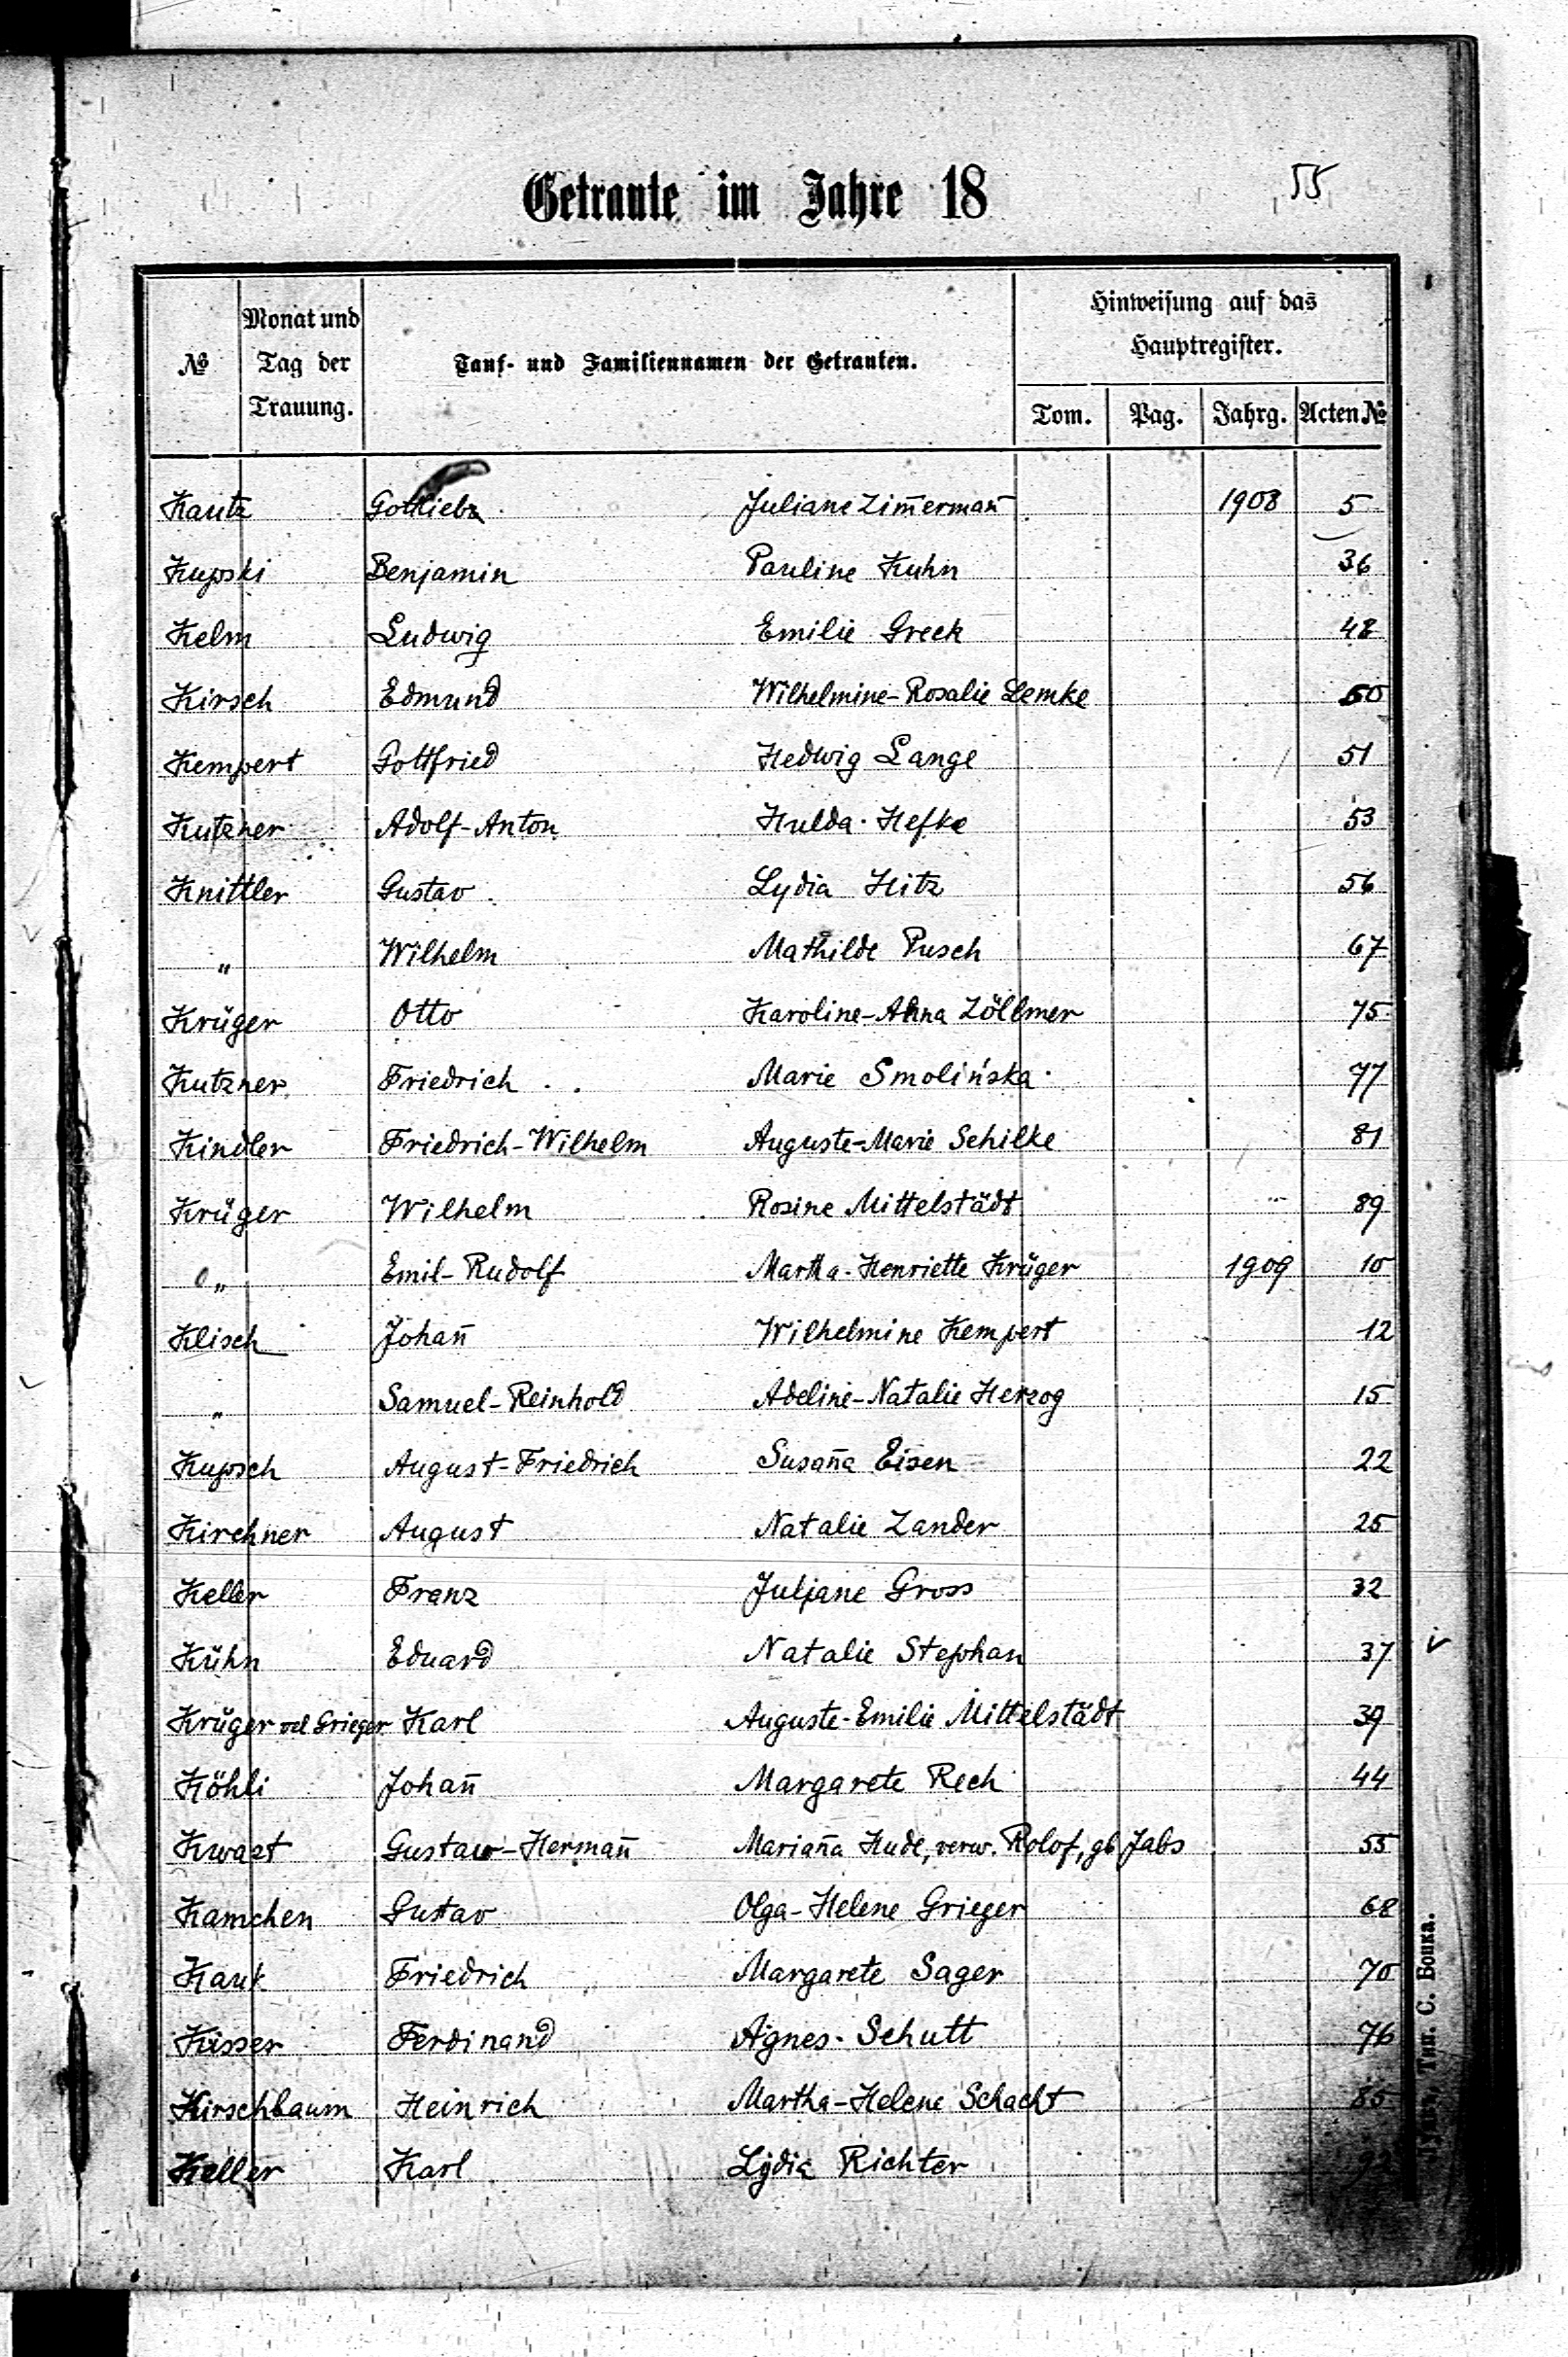 Getraute im Jahre 18 55
№ Monat und Tag der Trauung. Tauf- und Familiennamen der Getrauten. Hinweisung auf das Hauptregister.
Tom. Pag. Jahrg. Acten №
Kautz Gottlieb Juliane Zim̄erman̄ 1908 5
Kupski Benjamin Pauline Kuhn 36
Kelm Ludwig Emilie Greek 48
Kirsch Edmund Wilhelmine-Rosalie Lemke 50
Kempert Gottfried Hedwig Lange 51
Kutzner Adolf-Anton Hulda Hefke 53
Knittler Gustav Lydia Hitz 56
" Wilhelm Mathilde Pusch 67
Krüger Otto Karoline-Anna Zöllmer 75
Kutzner Friedrich Marie Smolińska 77
Kindler Friedrich-Wilhelm Auguste-Marie Schilke 81
Krüger Wilhelm Rosine Mittelstädt 89
" Emil-Rudolf Martha-Henriette Krüger 1909 10
Klisch Johan̄ Wilhelmine Kempert 12
" Samuel-Reinhold Adeline-Natalie Herzog 15
Kupsch August-Friedrich Susan̄a Eisen 22
Kirchner August Natalie Zander 25
Keller Franz Juljane Gross 32
Kühn Eduard Natalie Stephan 37
Krüger vel Grieger Karl Auguste-Emilie Mittelstädt 39
Köhli Johan̄ Margarete Rech 44
Kwast Gustaw-Herman̄ Marian̄a Hude, verw. Rolof, gb Jabs 55
Kamchen Gustav Olga-Helene Grieger 68
Kauk Friedrich Margarete Sager 70
Kisser Ferdinand Agnes Schutt 76
Kirschbaum Heinrich Martha-Helene Schacht 85
Keller Karl Lydia Richter
Тип. С. Бонка.